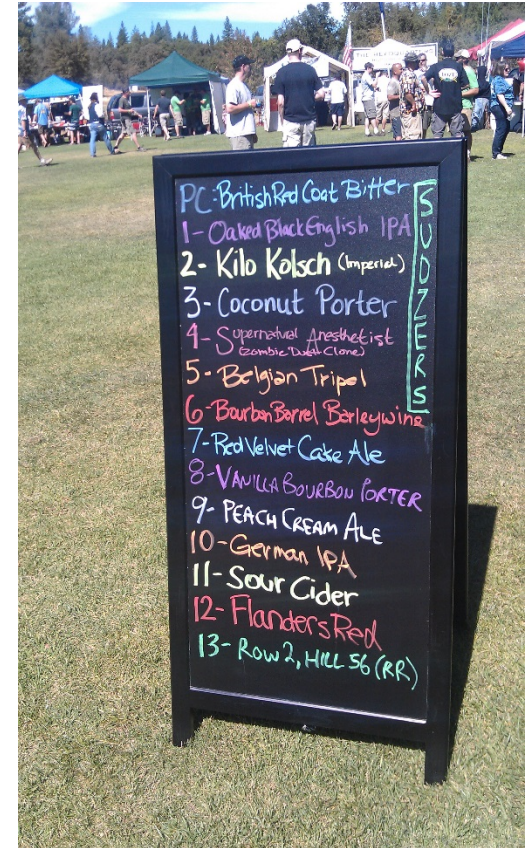 PC-British Red Coat Bitter
1-Oaked Black English IPA
2-Kilo Kolsch (Imperial)
3-Coconut Porter
4-Supernatural Anesthetist
(Zombie Dust Clone)
5-Belgian Tripel
6-Bourbon Barrel Barleywine
7-Red Velvet Cake Ale
8-VANILLA BOURBON PORTER
9-PEACH CREAM ALE
10-German IPA
11-Sour Cider
12-Flanders Red
13-ROW 2, HILL 56 (RR)
SUDZERS